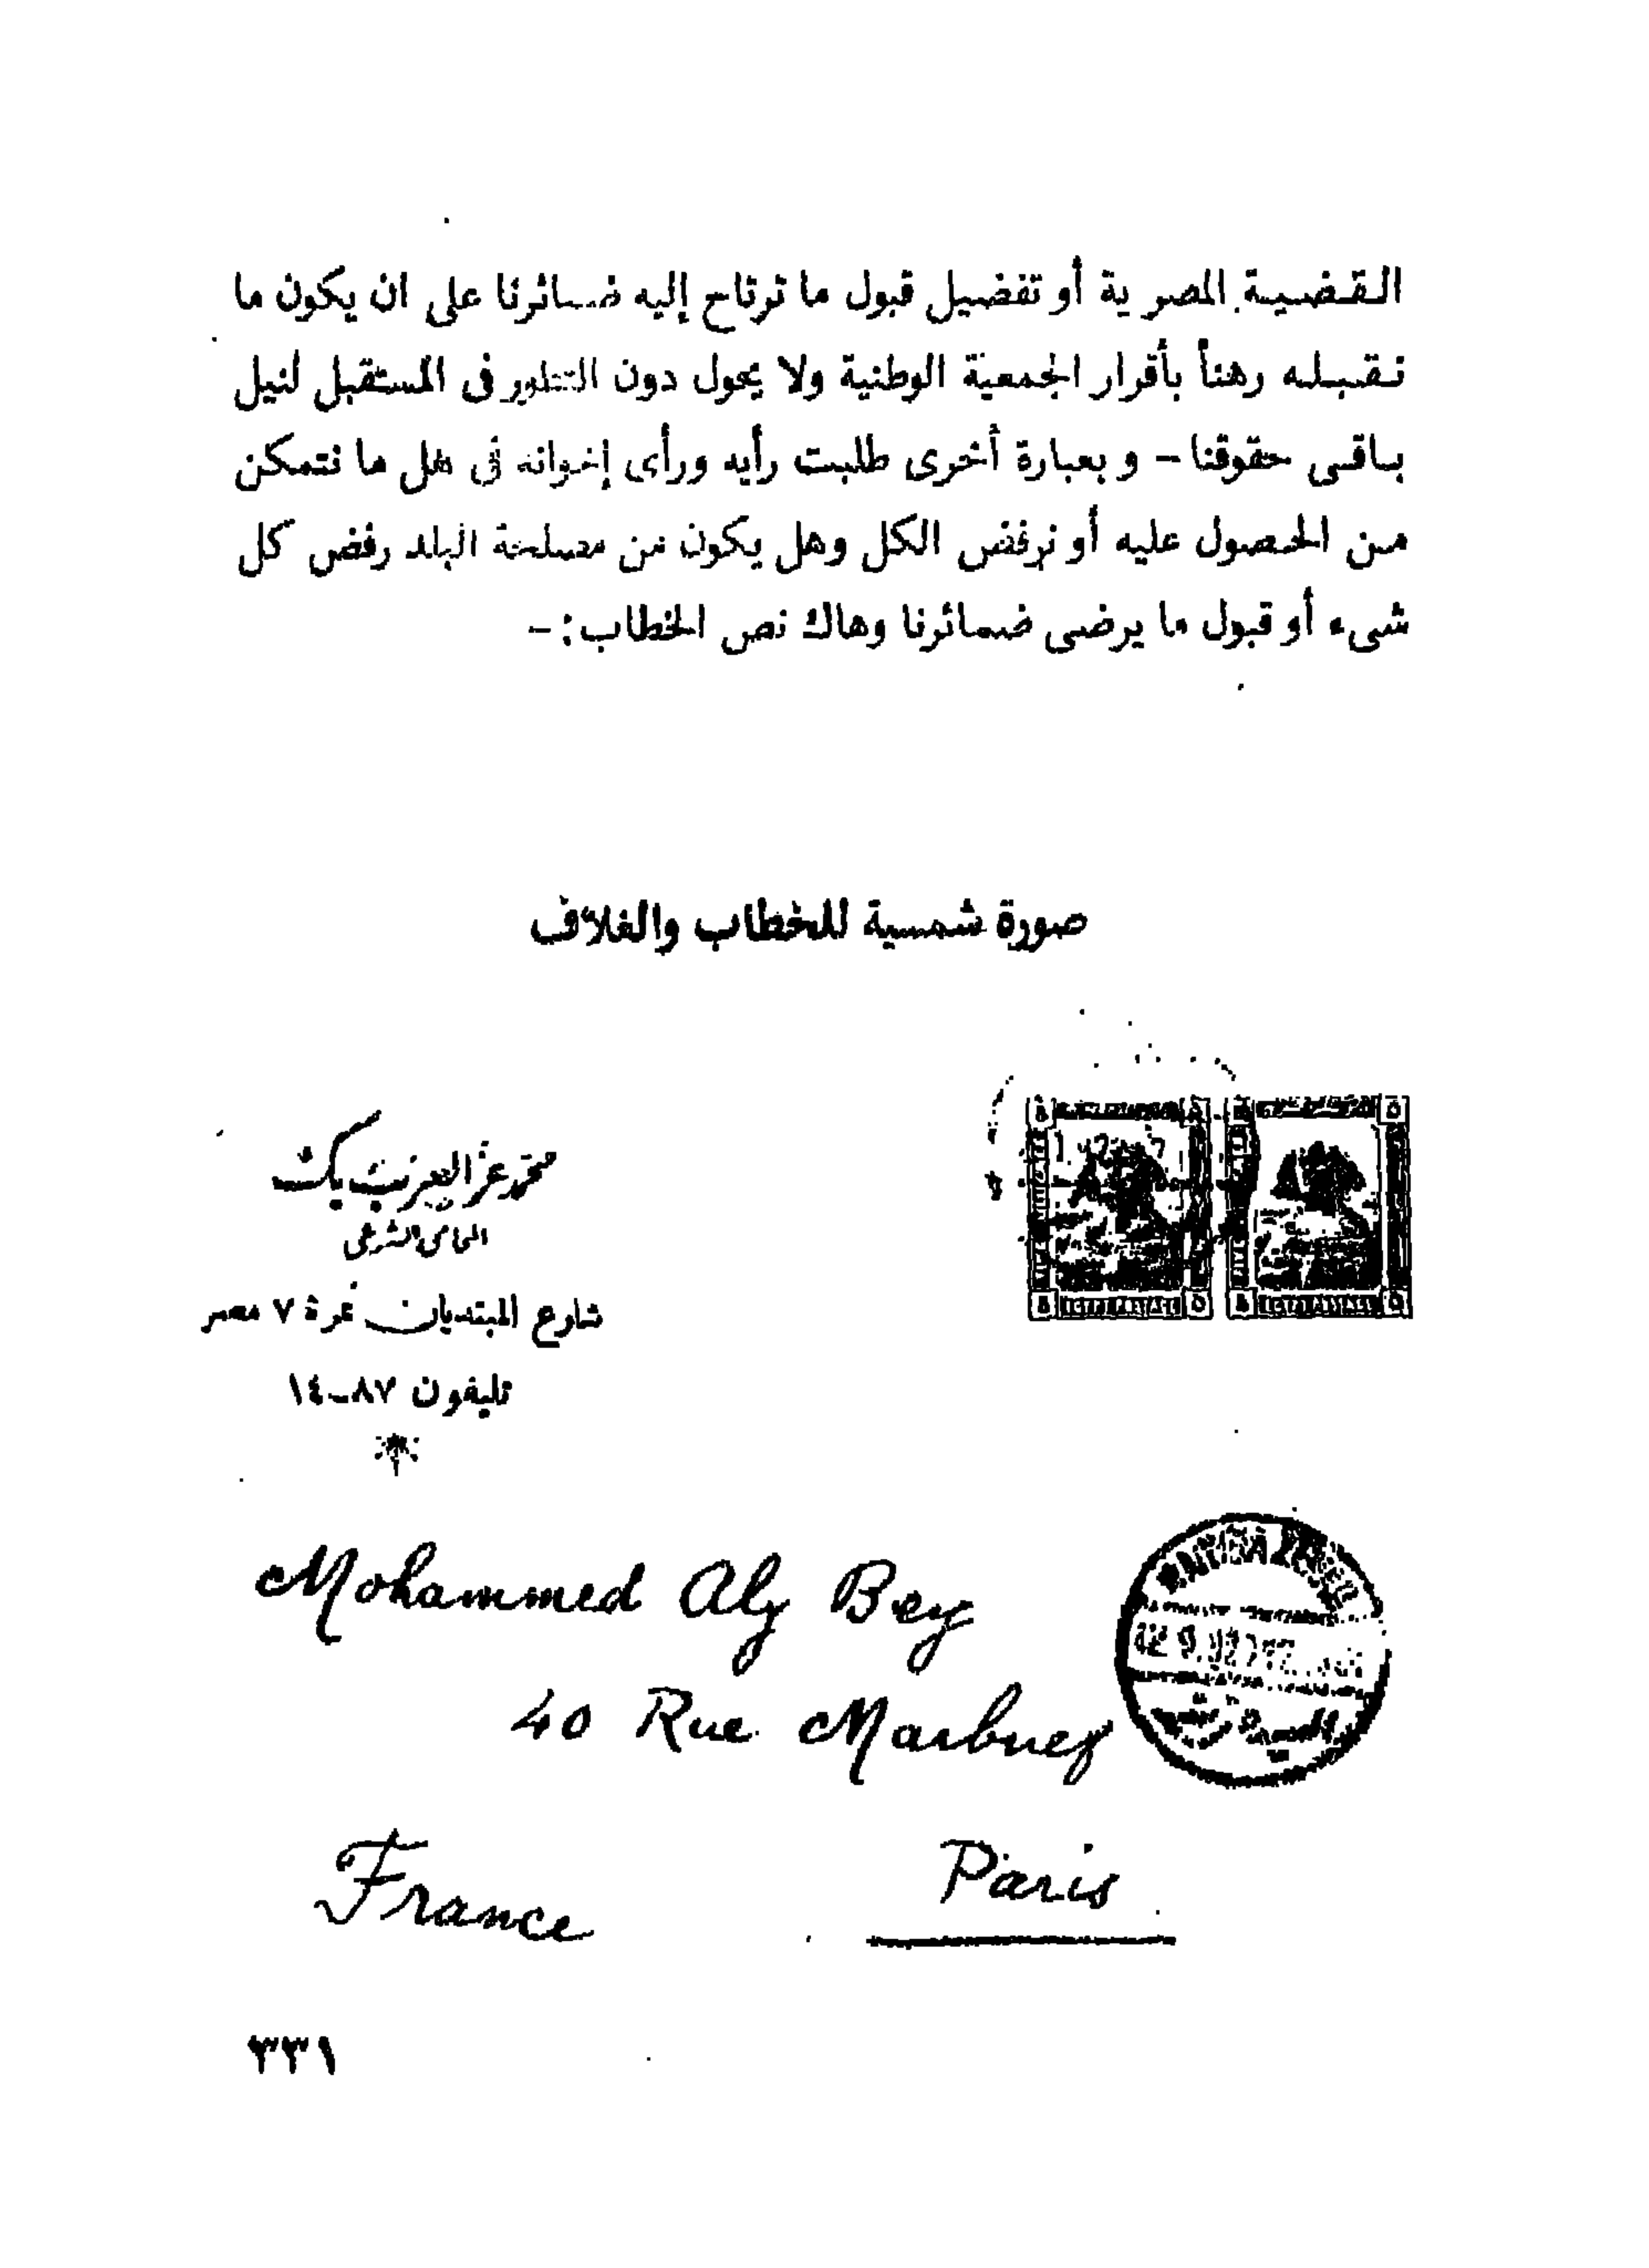 القضية المصرية أو تفضيل قبول ما ترتاح إليه ضمائرنا على ان يكون ما
نقبله رهناً بأقرار الجمعية الوطنية ولا يحول دون التطور فى المستقبل لنيل
باقى حقوقنا – وبعبارة أخرى طلبت رأيه ورأى إخوانه فى هل ما نتمكن
من الحصول عليه أو نرفض الكل وهل يكون من مصلحة البلد رفض كل
شىء أو قبول ما يرضى ضمائرنا وهاك نص الخطاب : –
صورة شمسية للخطاب والغلاف
محمد عز العرب بك
المحامى الشرعى
شارع المبتديان نمرة ٧ مصر
تليفون ٨٧–١٤
Mohammed Aly Bey
40 Rue Marbuef
Paris
France
٣٣١